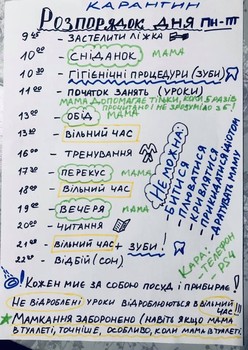 КАРАНТИН
РОЗПОРЯДОК ДНЯ ПН-ПТ
9:45 – ЗАСТЕЛИТИ ЛІЖКА
10:00 – СНІДАНОК МАМА
10:30 – ГІГІЄНІЧНІ ПРОЦЕДУРИ (ЗУБИ)
11:00 – ПОЧАТОК ЗАНЯТЬ (УРОКИ)
МАМА ДОПОМАГАЄ ТІЛЬКИ, КОЛИ 5 РАЗІВ
ПРОЧИТАНО І НЕ ЗРОЗУМІЛО
13:00 – ОБІД МАМА
ВІЛЬНИЙ ЧАС
16:00 – ТРЕНУВАННЯ
17:00 – ПЕРЕКУС МАМА
18:00 – ВІЛЬНИЙ ЧАС
19:00 – ВЕЧЕРЯ МАМА
20:00 – ЧИТАННЯ
21:00 – ВІЛЬНИЙ ЧАС + ЗУБИ!
22:00 – ВІДБІЙ (СОН).
НЕ МОЖНА:
- БИТИСЯ
- ПЛЮВАТИСЯ
- КРИВЛЯТИСЯ
- ПРИКИДАТИСЯ ІДІОТОМ
- ДРАТУВАТИ МАМУ!
КАРА: ТЕЛЕФОН
PS4
! КОЖЕН МИЄ ЗА СОБОЮ ПОСУД І ПРИБИРАЄ!
НЕ ВІДРОБЛЕНІ УРОКИ ВІДРОБЛЮЮТЬСЯ В ВІЛЬНИЙ
ЧАС!!!
МАМКАННЯ ЗАБОРОНЕНО (НАВІТЬ ЯКЩО МАМА
В ТУАЛЕТІ, ТОЧНІШЕ, ОСОБЛИВО, КОЛИ МАМА В ТУАЛЕТІ)